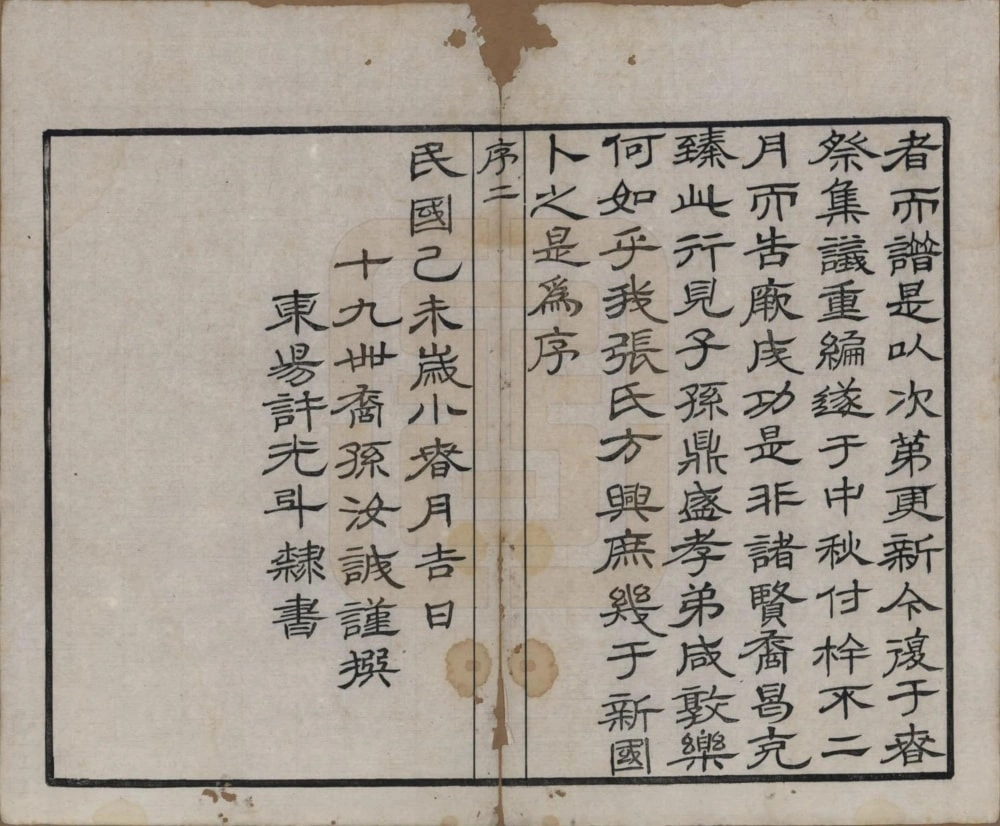 者而譜是以次第更新今復于春
祭集議重編遂于中秋付梓不二
月而告厥成功是非諸賢裔曷克
臻此行見子孫鼎盛孝弟咸敦樂
何如乎我張氏方興庶幾于新國
卜之是為序
序二
民國己未歲小春月吉日
十九世裔孫汝誠謹撰
東陽許光斗隸書